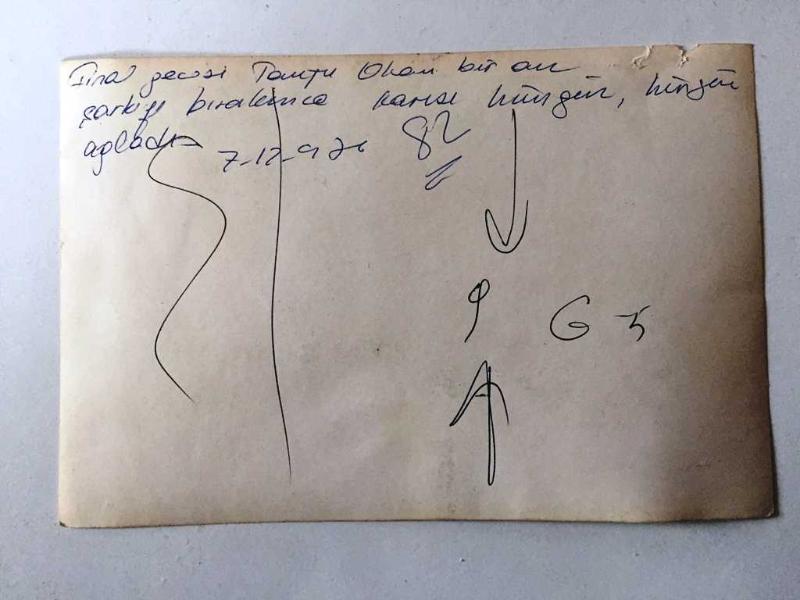 Final gecesi Tanju Okan bir an
şarkıyı bırakınca karısı hüngür, hüngür
ağladı
7-12-976 82
9 G 5